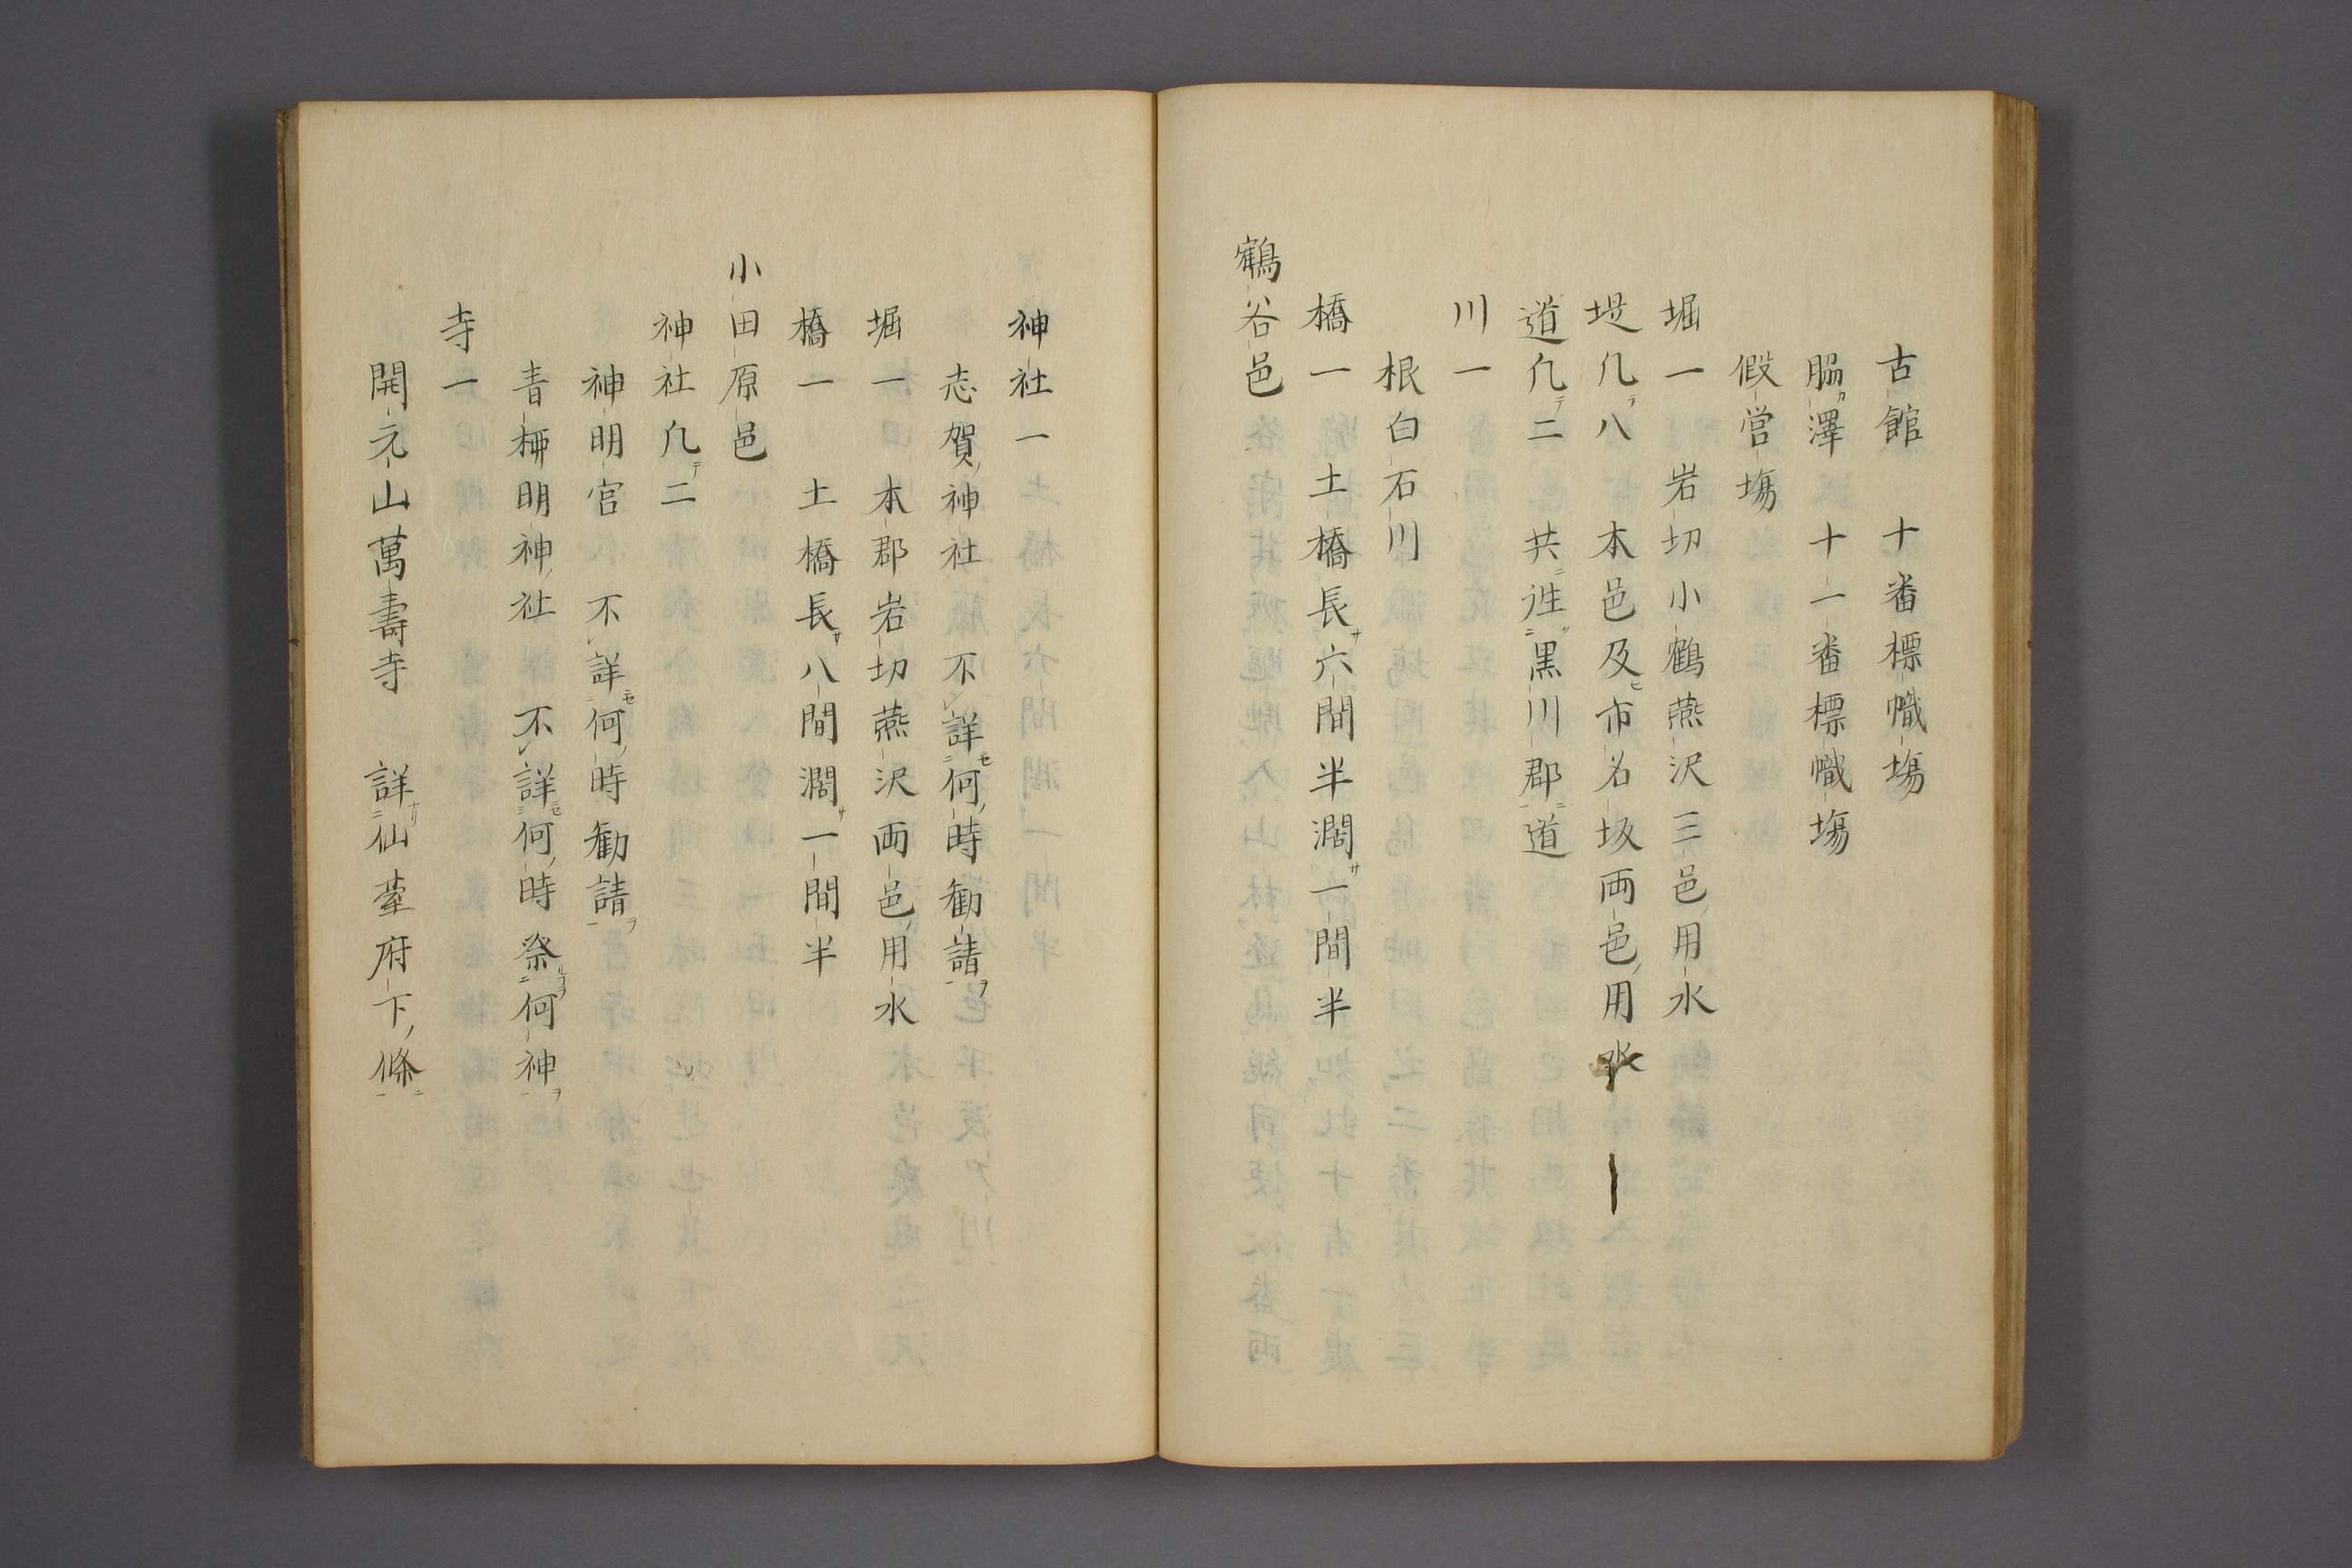 古館　十番標幟塲
脇澤　十一番標幟塲
假営塲
堀一　岩切小鶴燕沢三邑用水
堤凢八　本邑及市名坂両邑用水
道凢二　共徃黒川郡道
川一
根白石川
橋一　土橋長六間半濶一間半
鶴谷邑
神社一
志賀神社　不詳何時勧請
堀一　本郡岩切燕沢両邑用水
橋一　土橋長八間濶一間半
小田原邑
神社凢二
神明宮　不詳何時勧請
青麻明神社　不詳何時祭何神
寺一
開元山萬壽寺　詳仙臺府下條